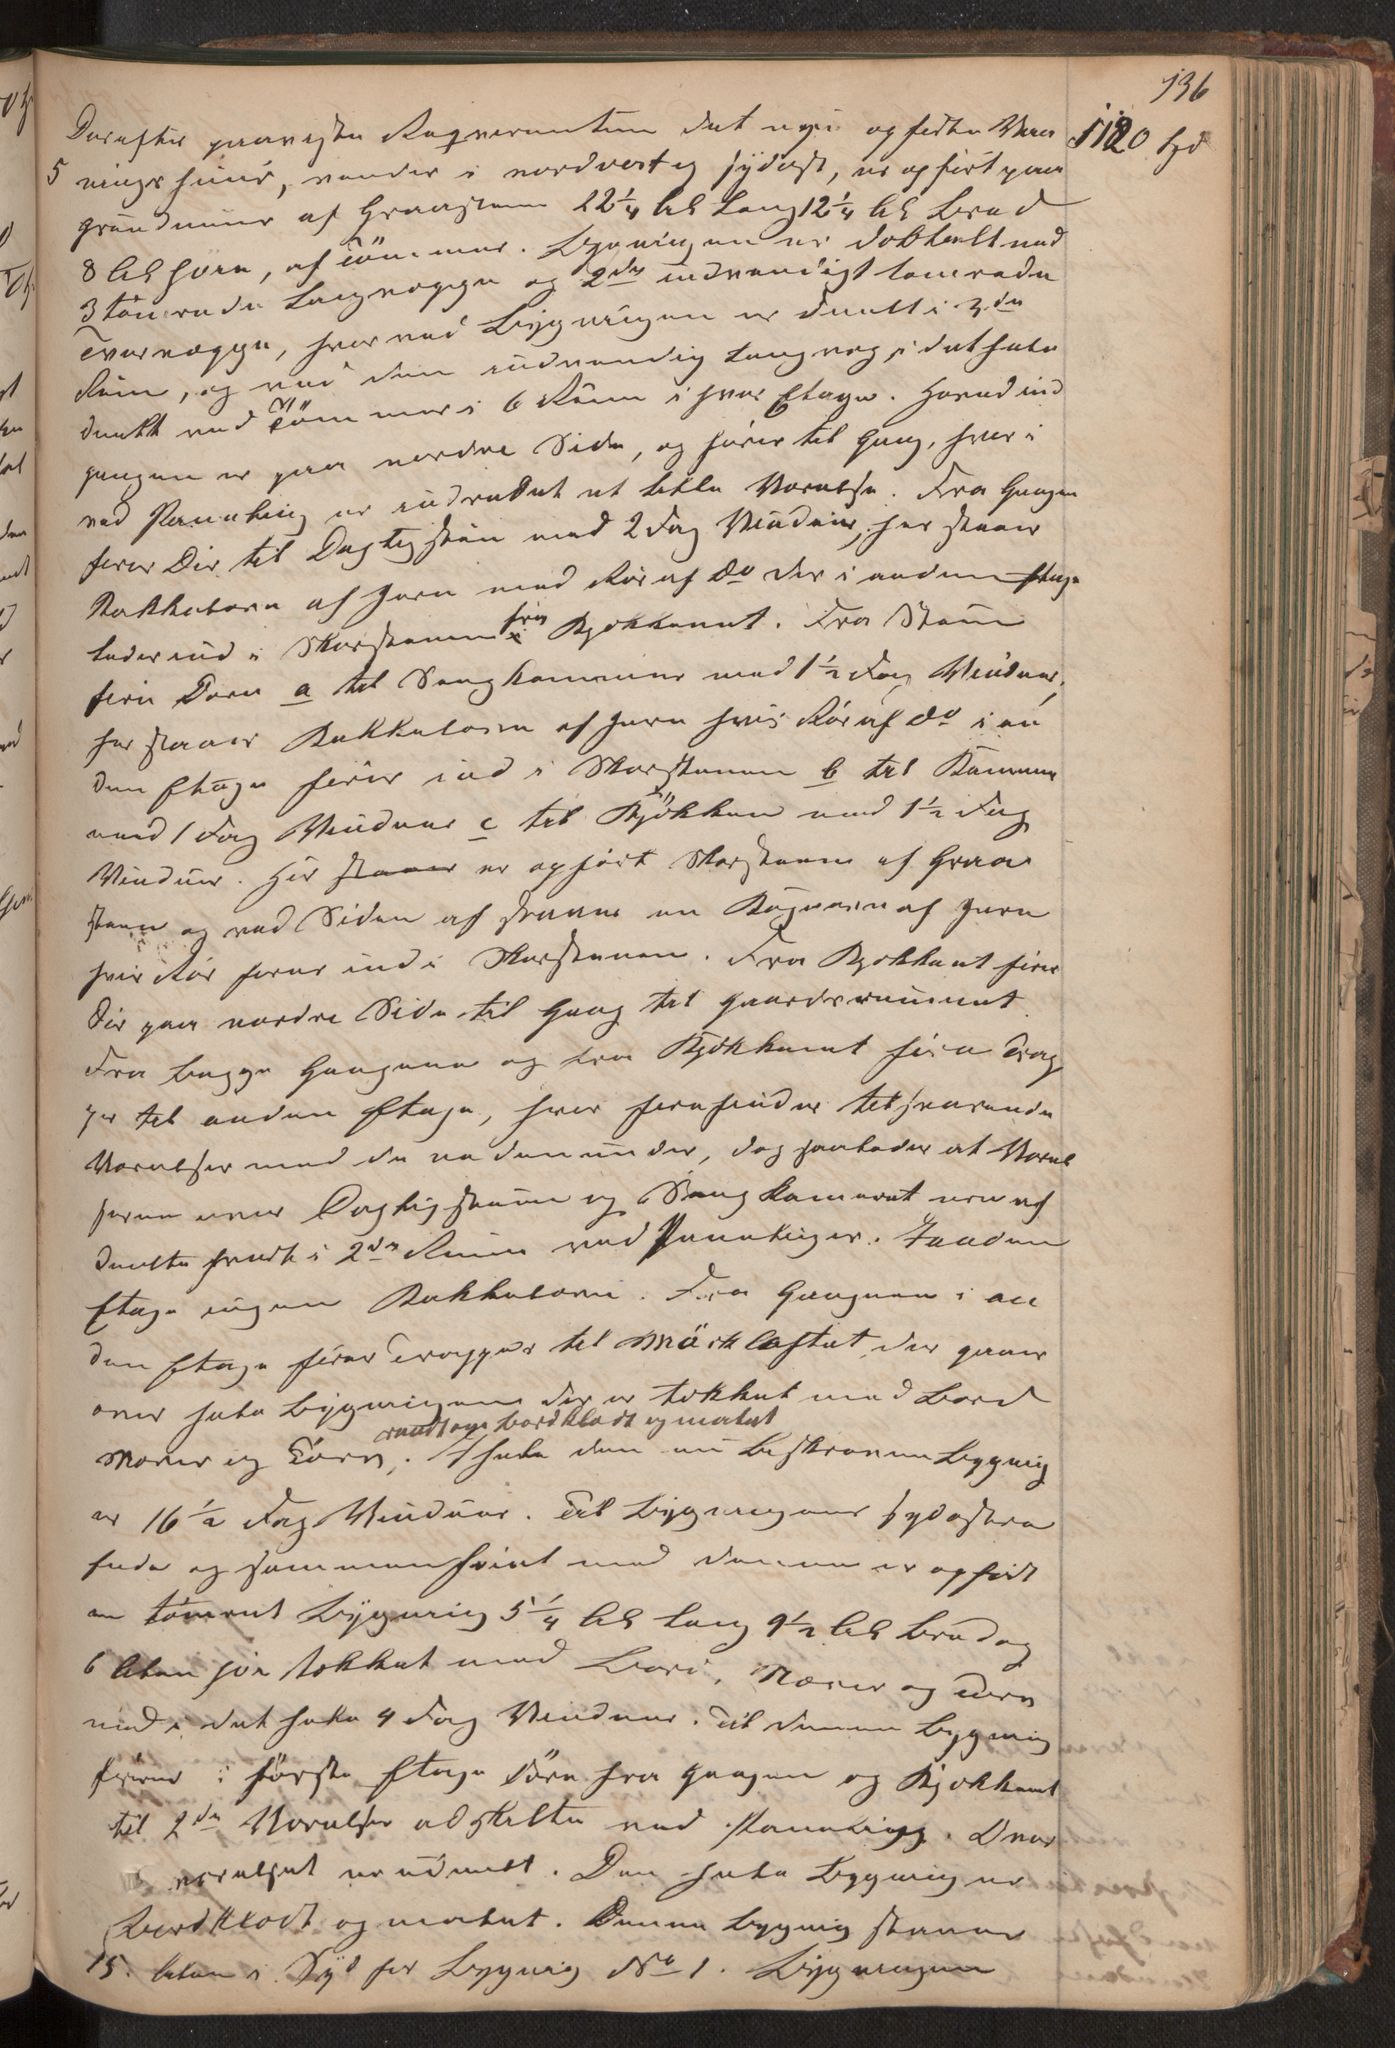 136
1120 Spd
Derefter paaviste Requirenten det nye opførte Vaa
5 ningshuus, vender i nordvest og sydost, er opført paa
grundmuur af Graasteen 22 1/4 Al Lang 12 1/4 Al Bred
8 Al høi, af Tömmer. Bygningen er dobbelt med
3 tömrede Langvægge og 2de indvendigt tömrede
Tvervægge, hvorved Bygningen er deelt i 3de
Rum, og ved den indvendig Langvæg i det hele
deelt ved Tömmer i 6 Rum i hver Etage. Hovedind
gangen er paa nordre Side, og fører til Gang, hvor i
ved Paneling er indredet et lille Værelse. Fra Gangen
fører Dør til Dagligstuen med 2 Fag Vinduer, her staaer
Kakkelovn af Jern med Rør af do der i anden Etage
leder ind i Skorstenen fra Kjøkkenet. Fra Stuen
føre Døre a til Sengkammer med 1 1/2 Fag Vinduer,
her staaer Kakkelovn af Jern hvis Rør af do i an
den Etage fører ind i Skorstenen b til Kammer
med 1 Fag Vinduer c til Kjökken med 1 1/2 Fag
Vinduer. Her staaer er opført Skorsteen af Graa
steen og ved Siden af staaer en Kogeovn af Jern
hvis Rør fører ind i Skorstenen. Fra Kjøkkenet fører
Dør paa nordre Side til Gang til Gaardsrummet.
Fra begge Gangene og fra Kjøkkenet føre Trap
per til anden Etage, hvor forefindes tilsvarende
Værelser med de nedenunder, dog saaledes at Værel
serne over Dagligstuen og Sengkammeret ere af
deelte hvert i 2de Rum ved Panelinger. I anden
Etage ingen Kakkelovne. Fra Gangene i an
den Etage fører Trapper til Mörkloftet, der gaaer
over hele Bygningen der er tækket med Bord
rundt om bordklædt og malet
Næver og Törv. I hele den nu beskrevne Bygning
er 16 1/2 Fag Vinduer. Til Bygningens sydostre
Ende og sammenhørent med denne er opført
en tömret Bygning 5 1/4 Al Lang 9 1/2 Al Bred og
6 Alen høi tækket med Bord, Næver og Törv
med i det hele 4 Fag Vinduer. Til denne Bygning
fører i første Etage Döre fra Gangen og Kjøkkenet
til 2de Værelser adskilte ved Paneling. Over
værelset er udeelt. Den hele Bygning er
Bordklædt og malet. Denne Bygning staaer
15. Alen i Syd for Bygning No 1. Bygningen